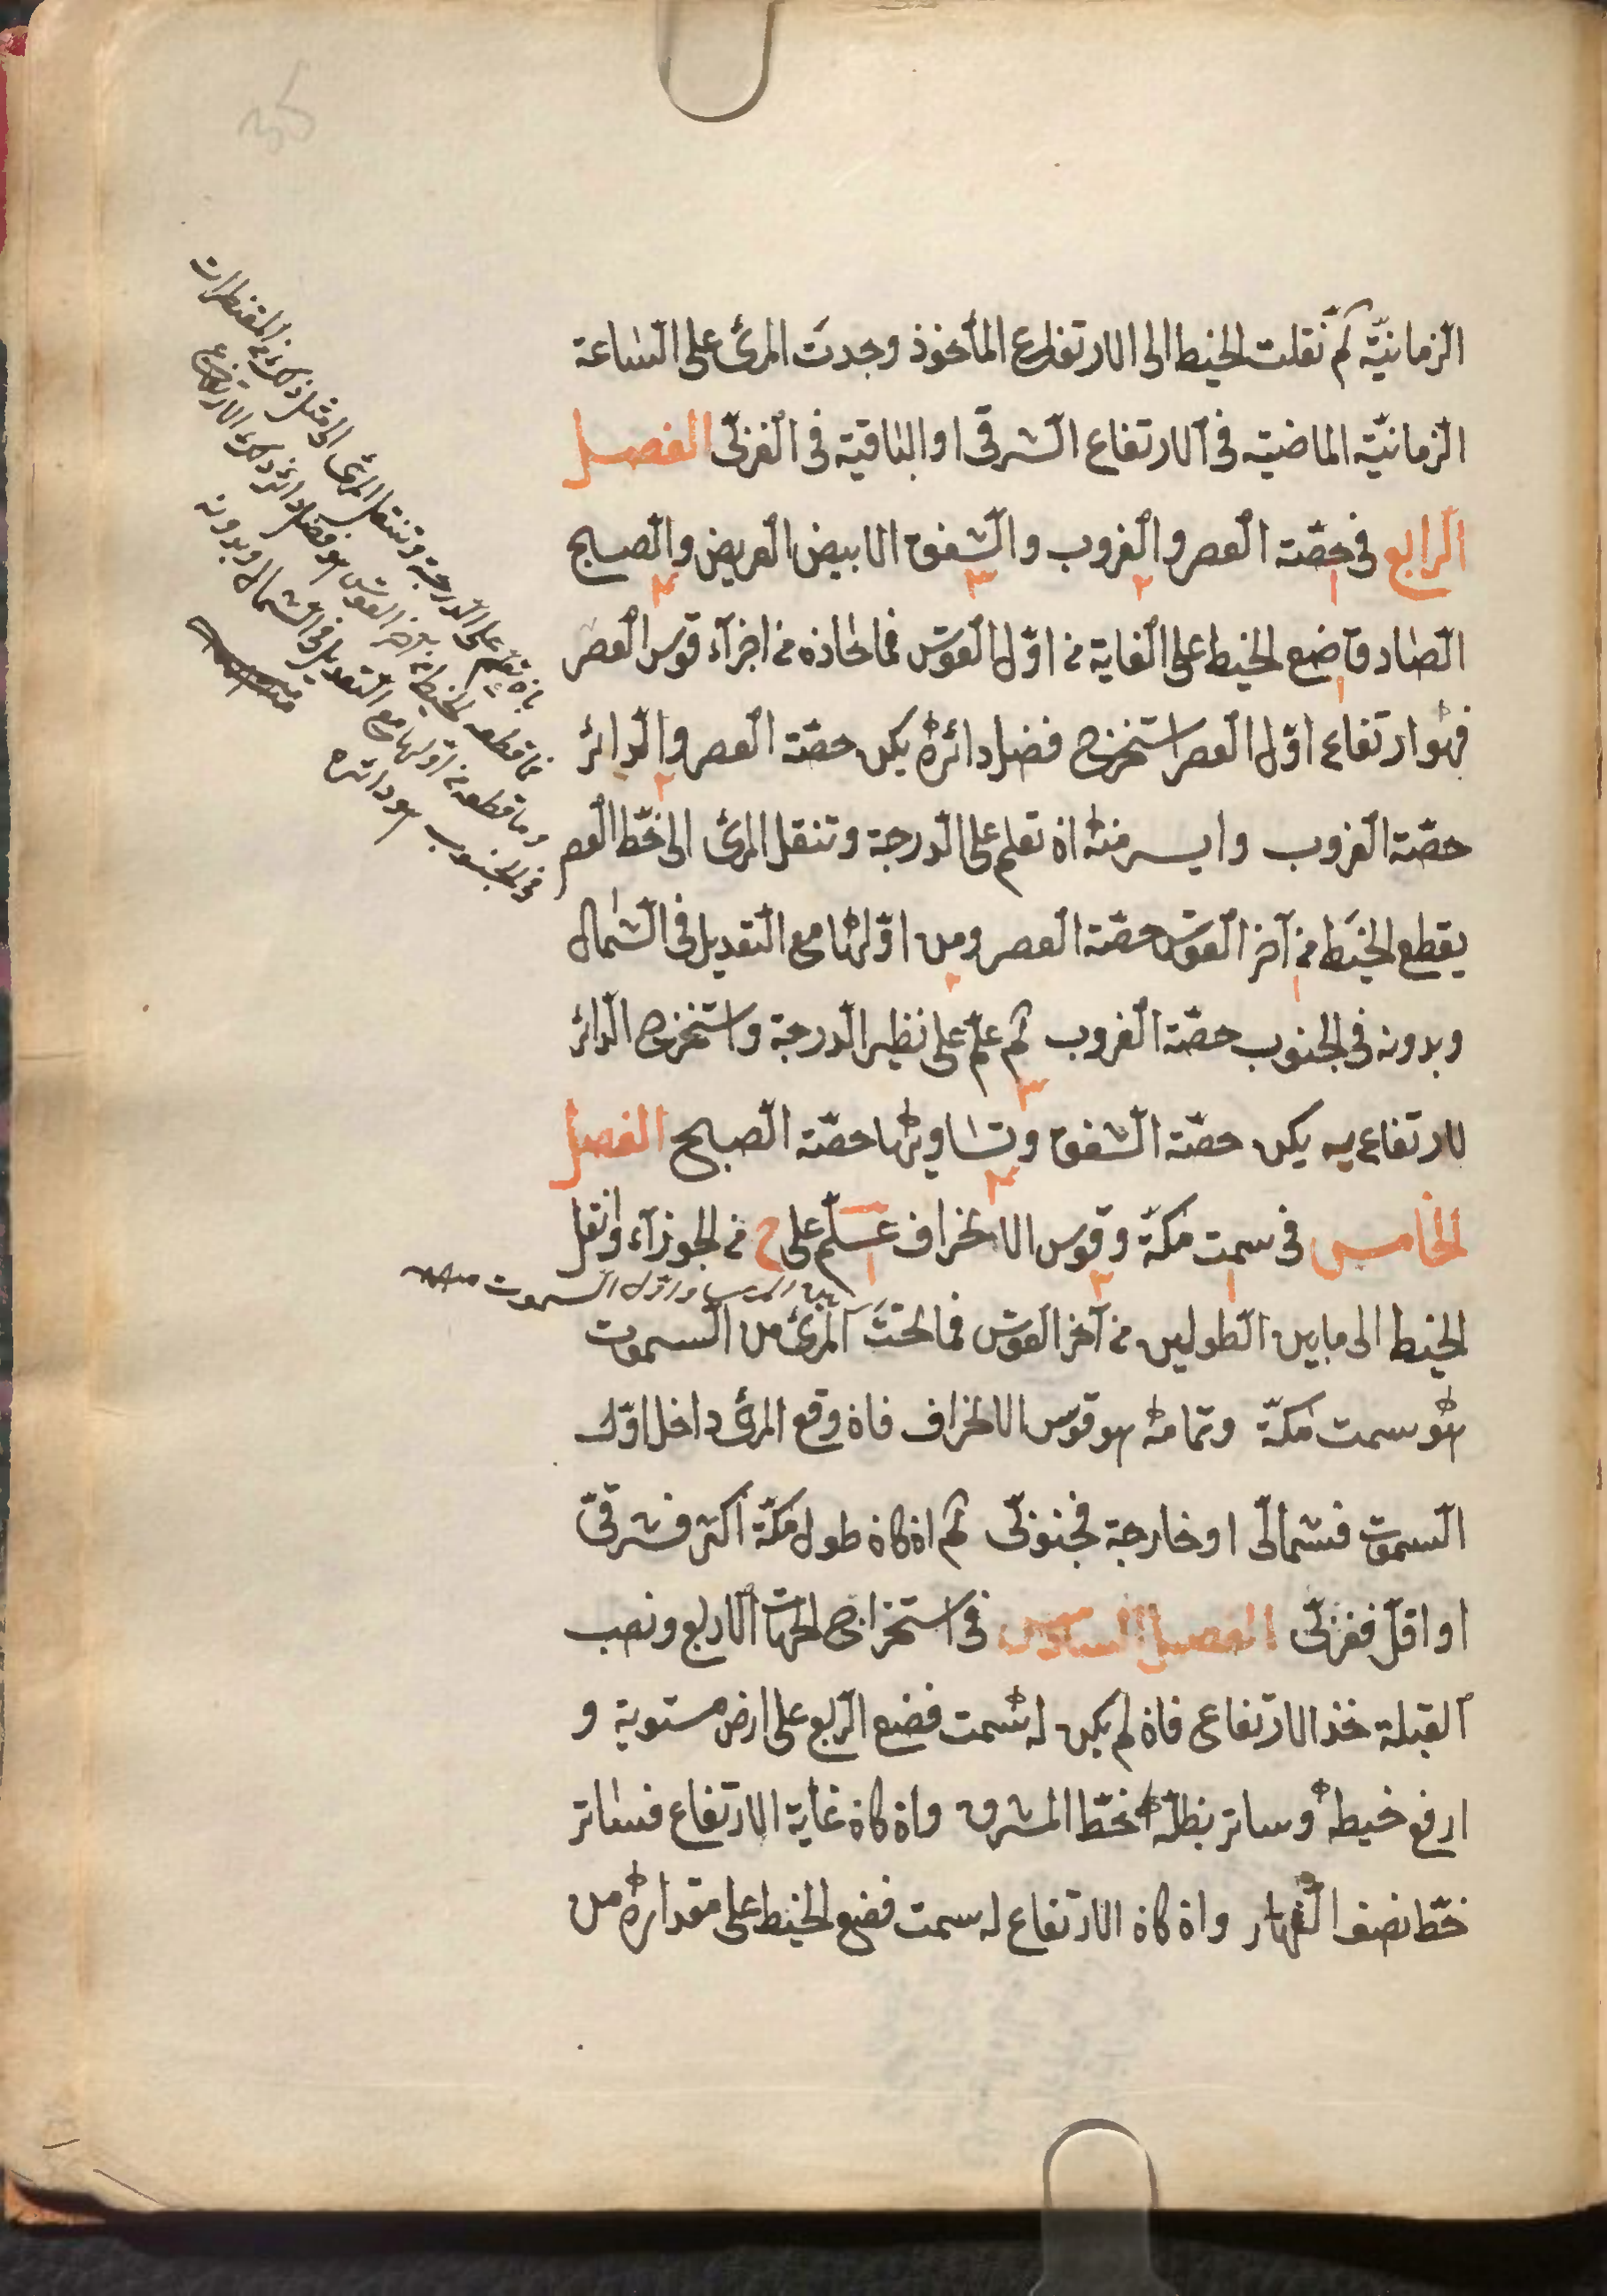 الزمانيّة ثمّ نقلت الخيط الى الارتفاع المأخوذ وجدت المرئ على السّاعة
الزمانيّة الماضية فى الارتفاع الشرقى او الباقية فى الغربى الفصل
الرابع فى حصّة العصر والغروب والشفق الابيض العريض والصبح
الصادق ضع الخيط على الغاية من اوّل القوس فما حاذه من اجزآء قوس العصر
فهو ارتفاع اوّل العصر استخرج فضل دائره يكن حصّة العصر والدائر
حصّة الغروب وايسر منه ان تعلم على الدرجة وتنقل المرئ الى خطّ العصر
يقطع الخيط من آخر القوس حصّة العصر ومن اوّلها مع التعديل فى الشمال
وبدونه فى الجنوب حصّة الغروب ثم علّم على نظير الدرجة واستخرج الدائر
لارتفاع يه يكن حصّة الشفق وتساويها حصّة الصبح الفصل
الخامس فى سمت مكّة وقوس الانحراف علّم على ح من الجوزآء وانقل
الخيط الى ما بين الطولين من آخر القوس فما تحت المرئ من السموت
هو سمت مكّة وتمامه هو قوس الانحراف فان وقع المرئ داخل اوّل
السموت فشمالى او خارجة فجنوبى ثم ان كان طول مكّة اكثر فشرقىّ
او اقلّ فغربى الفصل السادس فى استخراج الجهات الاربع ونصب
القبلة خذ الارتفاع فان لم يكن له سمت فضع الربع على ارض مستوية و
ارفع خيطه وساتر بظلّه خطّ المشرق وان كان غاية الارتفاع فساتر
خطّ نصف النهار وان كان الارتفاع له سمت فضع الخيط على مقداره من
بان تعلم على الدرجة وتنقل المرئ الى مثل ذلك من المقنطرات
فما قطعه الخيط من آخر القوس هو فضل دائر ذلك الارتفاع
وما قطعه من اوّلها مع التعديل فى الشمال وبدونه
فى الجنوب هو دائره
واوّل السموت